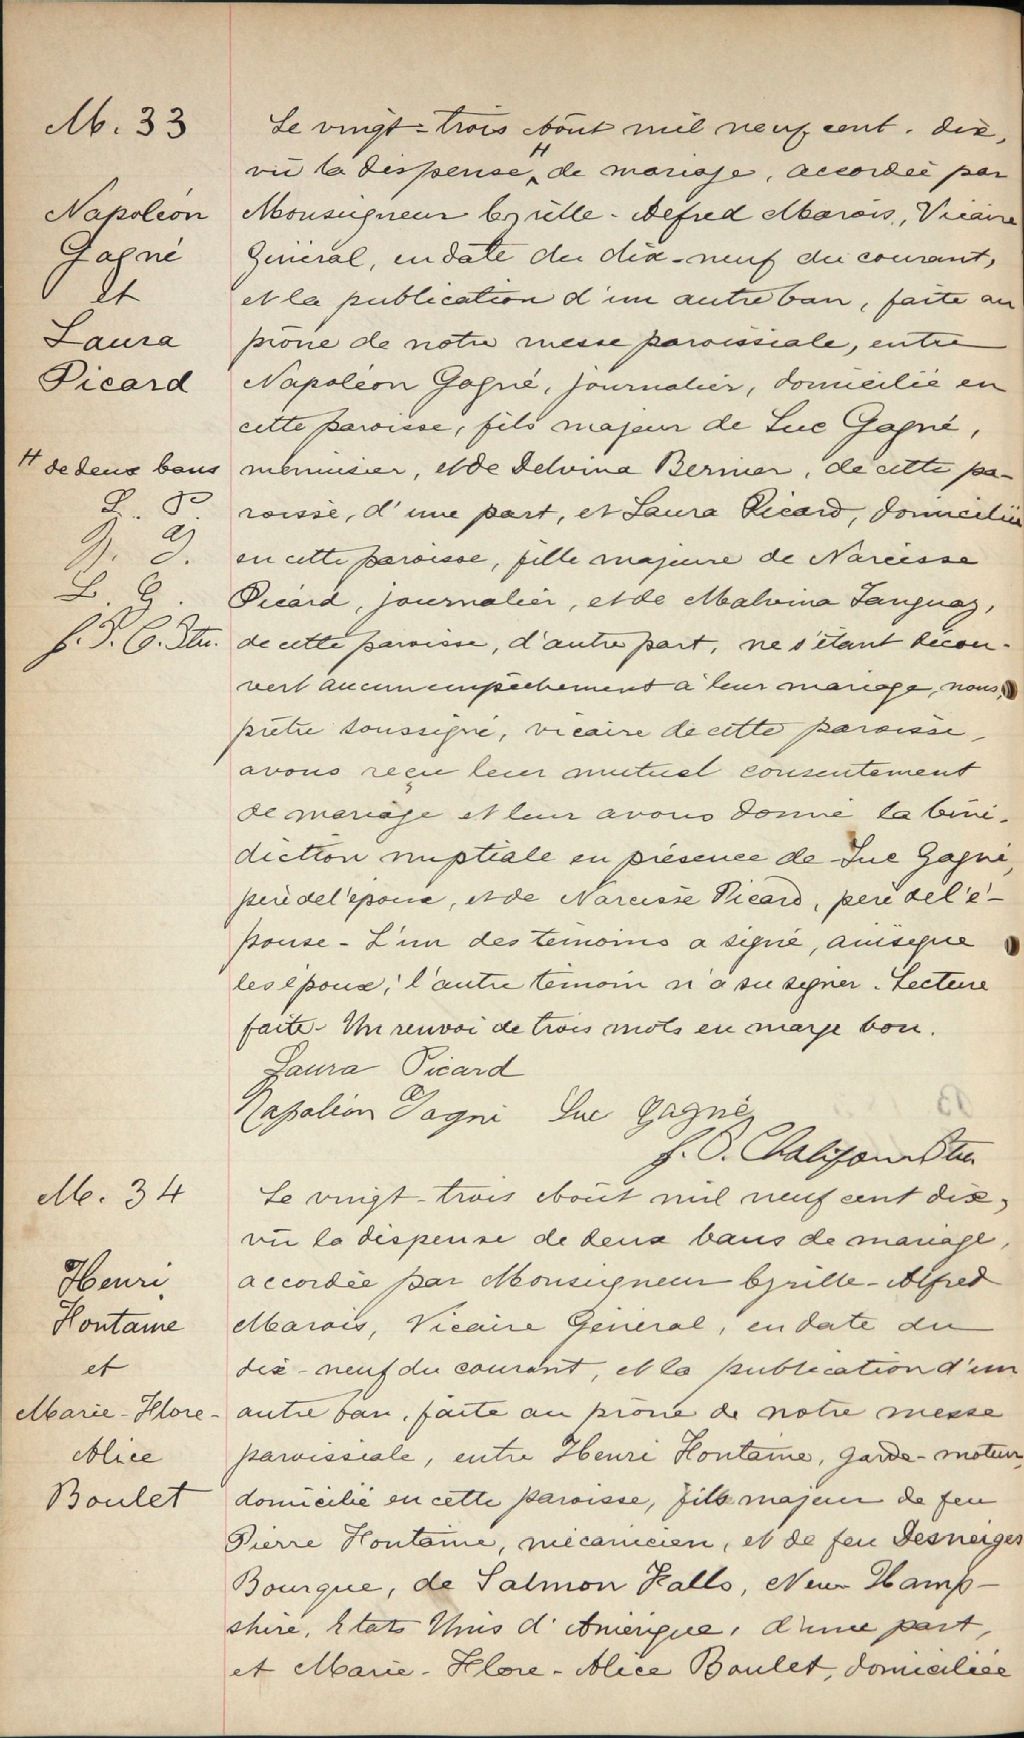 M. 33
Napoléon
Gagné
et
Laura
Picard
H de deux bans
L. P.
N. G.
L. G.
J. P. C. Ptre.
Le vingt-trois Août mil neuf cent dix,
vû la dispense H de mariage, accordée par
Monseigneur Cyrille-Alfred Marois, Vicaire
Général, en date du dix-neuf du courant,
et la publication d'un autre ban, faite au
prône de notre messe paroissiale, entre
Napoléon Gagné, journalier, domicilié en
cette paroisse, fils majeur de Luc Gagné,
menuisier, et de Delvina Bernier, de cette pa-
roisse, d'une part, et Laura Picard, domiciliée
en cette paroisse, fille majeure de Narcisse
Picard, journalier, et de Malvina Tanguay,
de cette paroisse, d'autre part, ne s'étant décou-
vert aucun empêchement à leur mariage, nous,
prêtre soussigné, vicaire de cette paroisse,
avons reçu leur mutuel consentement
de mariage et leur avons donné la béné-
diction nuptiale en présence de Luc Gagné,
père de l'époux, et de Narcisse Picard, père de l'é-
pouse - L'un des témoins a signé, ainsi que
les époux; l'autre témoin n'a su signer. Lecture
faite - Un renvoi de trois mots en marge bon.
Laura Picard
Napoléon Gagné Luc Gagné
J. P. Chalifour Ptre
M. 34
Henri
Fontaine
et
Marie-Flore-
Alice
Boulet
Le vingt-trois Août mil neuf cent dix,
vû la dispense de deux bans de mariage,
accordée par Monseigneur Cyrille-Alfred
Marois, Vicaire Général, en date du
dix-neuf du courant, et la publication d'un
autre ban, faite au prône de notre messe
paroissiale, entre Henri Fontaine, garde-moteur,
domicilié en cette paroisse, fils majeur de feu
Pierre Fontaine, mécanicien, et de feu Desneiges
Bourque, de Salmon Falls, New Hamp-
shire, Etats Unis d'Amérique, d'une part,
et Marie-Flore-Alice Boulet, domiciliée